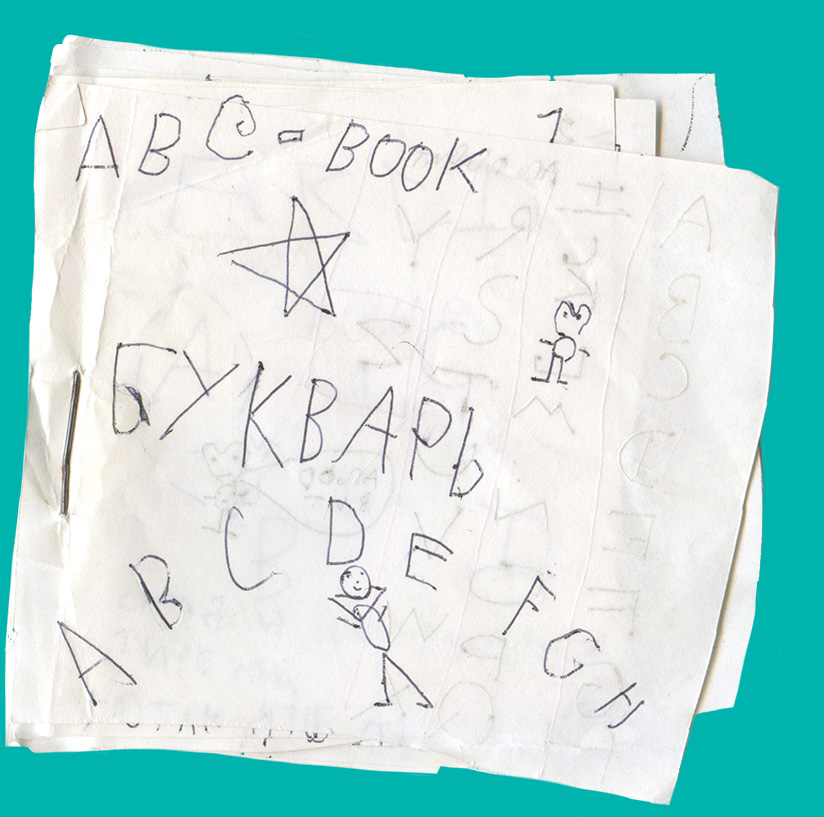 ABC-BOOK 1
БУКВАРЬ
A B C D E F G H